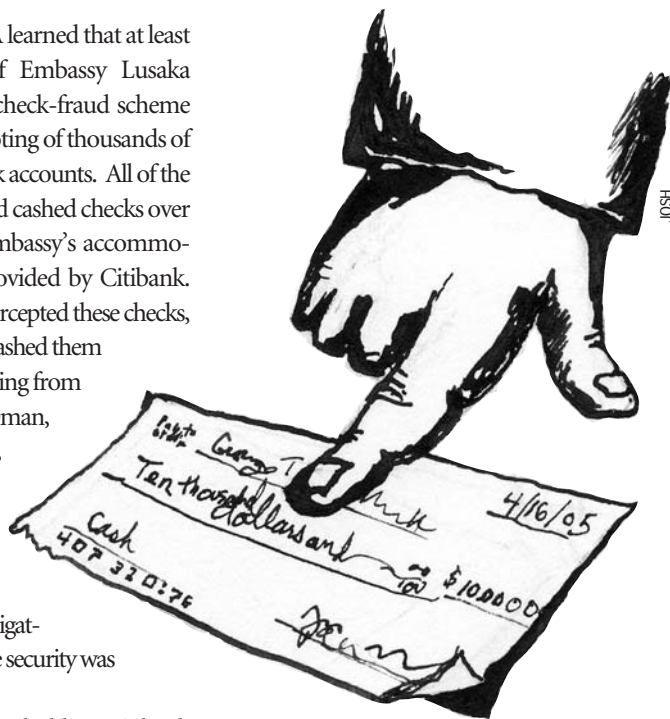 A learned that at least
f Embassy Lusaka
check-fraud scheme
ting of thousands of
k accounts. All of the
d cashed checks over
mbassy's accommo-
ovided by Citibank.
rcepted these checks,
ashed them
ing from
man,
igat-
e security was
Pay to
order
Ten thousand
dollars and
4/16/05
$10000
Cash